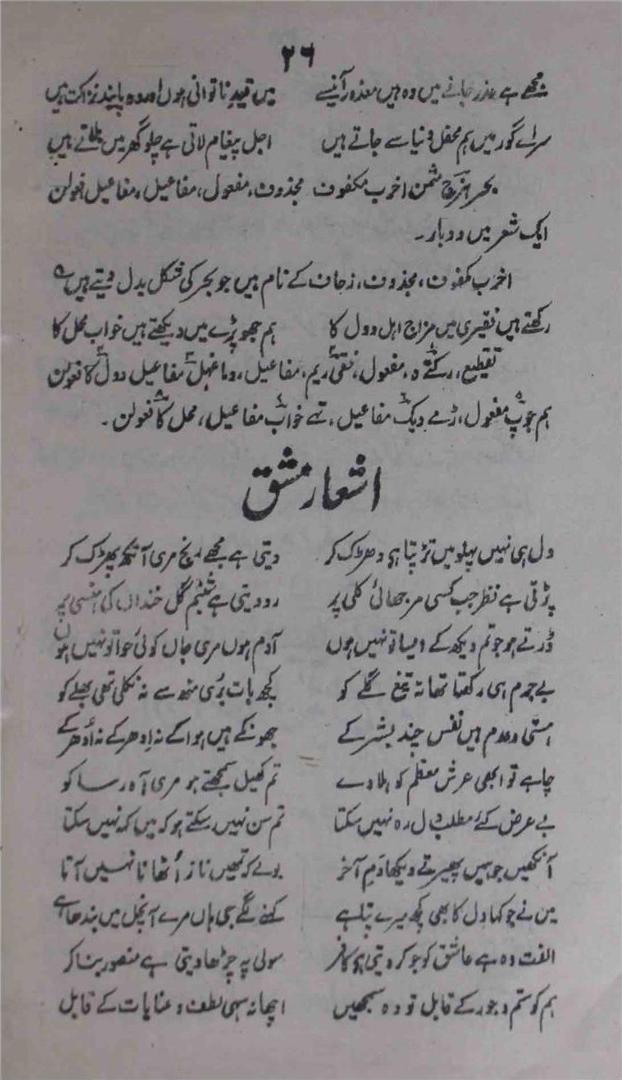 ۲۶
مجھے ہے عذر جانے میں وہ ہیں معذور آنیسے میں قید ناتوانی ہوں اور وہ پابند نزاکت ہیں
سرائے گور میں ہم محفل دنیا سے جاتے ہیں اجل پیغام لاتی ہے چلو گھر میں بلاتے ہیں
بحر ہزج مثمن اخرب مکفوف محذوف، مفعول، مفاعیل، مفاعیل فعولن
ایک شعر میں دو بار۔
اخرب مکفوف، محذوف، زحاف کے نام ہیں جو بحر کی شکل بدل دیتے ہیں
رکھتے ہیں فقیری میں مزاج اہل دول کا ہم جھوپڑے میں دیکھتے ہیں خواب محل کا
تقطیع، رکتے ہ، مفعول، فقی ریم، مفاعیل، مفاعیل دول کا فعولن
ہم جوپ مفعول، ڑمے دیک مفاعیل، تہے خواب مفاعیل، محل کا فعولن۔
اشعار مشق
دل ہی نہیں پہلو میں تڑپتا ہی دھڑک کر دیتی ہے مجھے رنج مری آنکھ پھڑک کر
پڑتی ہے نظر جب کسی مرجھائی کلی پر رو دیتی ہے شبنم گل خنداں کی ہنسی پر
ڈرتے ہو جو تم دیکھ کے ویسا تو نہیں ہوں آدم ہوں مری جاں کوئی حوا تو نہیں ہوں
بے جرم ہی رکھتا تھا نہ تیغ گلے کو کچھ بات بُری منھ سے نہ نکلی تھی بھلے کو
ہستی و عدم ہیں نفس چند بشر کے جھونکے ہیں ہوا کے نہ اِدھر کے نہ اُدھر کے
چاہے تو ابھی عرش معظم کو ہلا دے تم کھیل سمجھتے ہو مری آہ رسا کو
بے عرض کئے مطلب دل رہ نہیں سکتا تم سن نہیں سکتے ہو کہ میں کہ نہیں سکتا
آنکھیں جو ہمیں پھیرتے دیکھا دم آخر بولے کہ تمھیں ناز اُٹھانا نہیں آتا
میں نے جو کہا دل کا بھی کچھ میرے پتا ہے کہنے لگے جی ہاں مرے آنچل میں بندھا ہے
الفت وہ ہے عاشق کو جو کر دیتی ہی کافر سولی پہ چڑھا دیتی ہے منصور بنا کر
ہم کو ستم و جور کے قابل تو وہ سمجھیں اچھا نہ سہی لطف و عنایات کے قابل